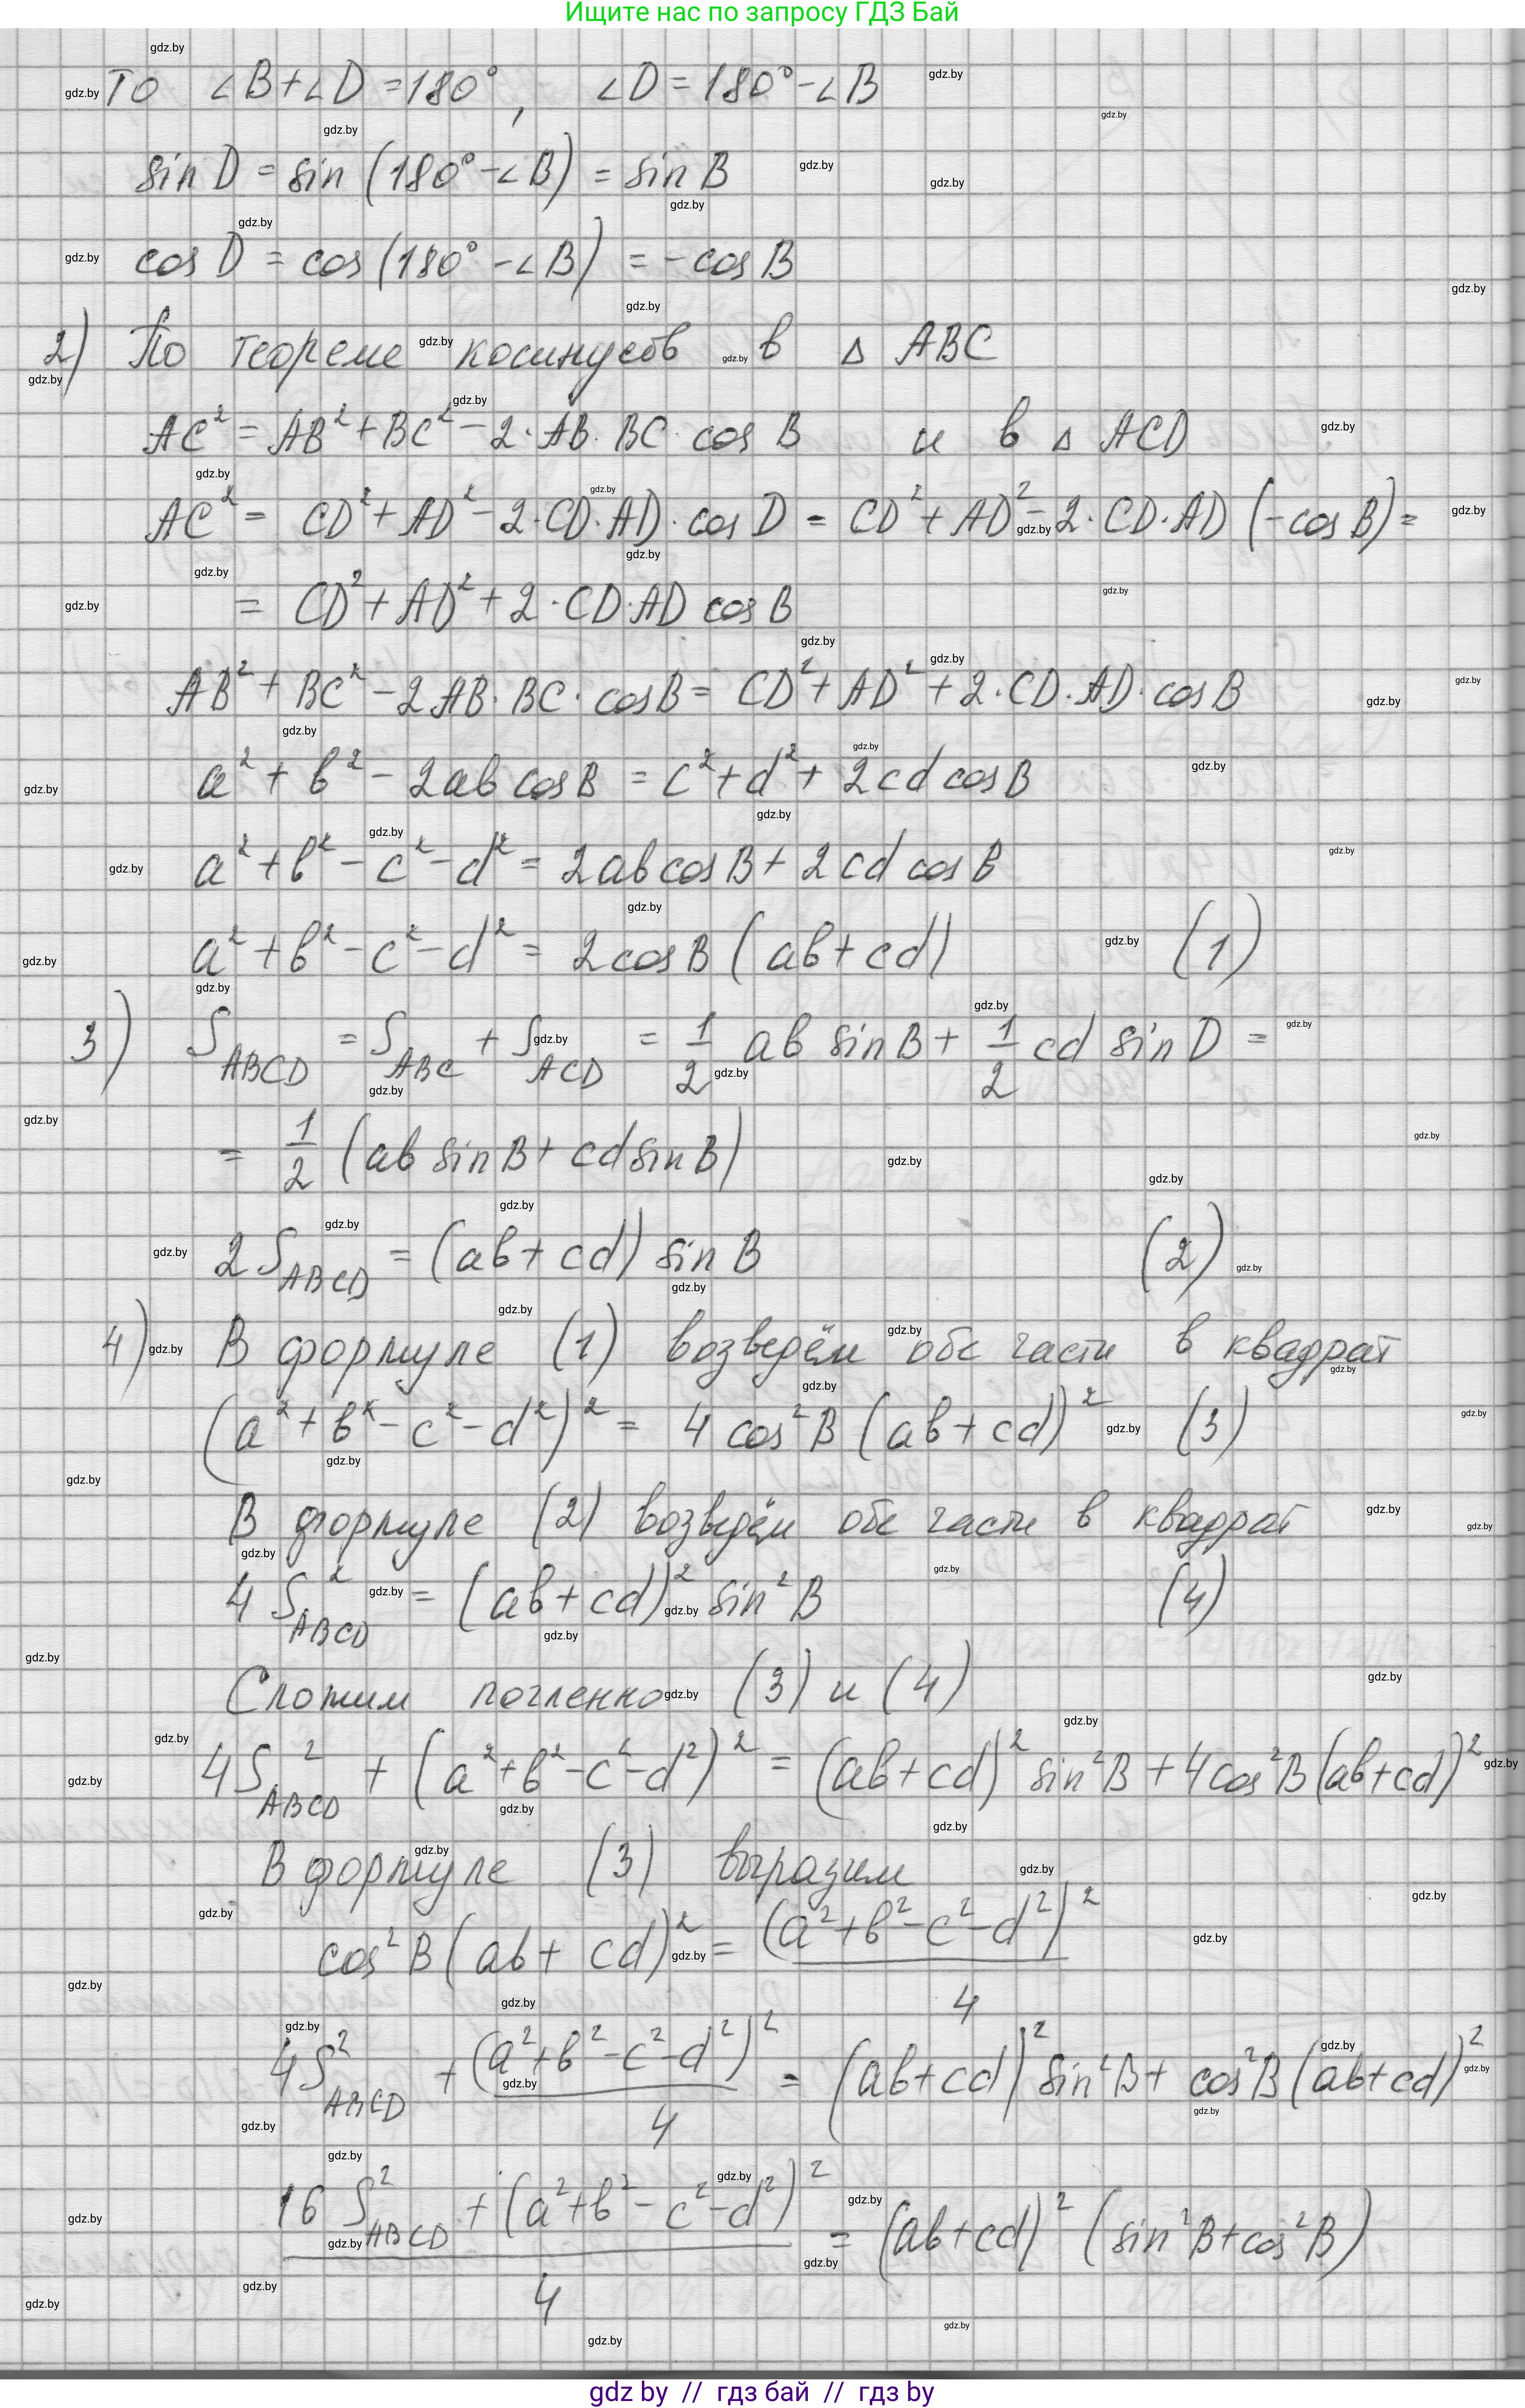 Ищите нас по запросу ГДЗ Бай
то ∠B+∠D=180°, ∠D=180°-∠B
sin D = sin (180°-∠B) = sin B
cos D = cos(180°-∠B) = -cos B
2) По теореме косинусов в △ ABC
AC² = AB² + BC² - 2·AB·BC·cos B и в △ ACD
AC² = CD² + AD² - 2·CD·AD·cos D = CD² + AD² - 2·CD·AD (-cos B) =
= CD² + AD² + 2·CD·AD cos B
AB² + BC² - 2AB·BC·cos B = CD² + AD² + 2·CD·AD·cos B
a² + b² - 2ab cos B = c² + d² + 2cd cos B
a² + b² - c² - d² = 2ab cos B + 2cd cos B
a² + b² - c² - d² = 2cos B (ab + cd) (1)
3) S_ABCD = S_ABC + S_ACD = 1/2 ab sin B + 1/2 cd sin D =
= 1/2 (ab sin B + cd sin B)
2 S_ABCD = (ab + cd) sin B (2)
4) В формуле (1) возведём обе части в квадрат
(a² + b² - c² - d²)² = 4 cos² B (ab + cd)² (3)
В формуле (2) возведём обе части в квадрат
4 S²_ABCD = (ab + cd)² sin² B (4)
Сложим почленно (3) и (4)
4 S²_ABCD + (a² + b² - c² - d²)² = (ab + cd)² sin² B + 4 cos² B (ab + cd)²
В формуле (3) выразим
cos² B (ab + cd)² = (a² + b² - c² - d²)² / 4
4 S²_ABCD + (a² + b² - c² - d²)² / 4 = (ab + cd)² sin² B + cos² B (ab + cd)²
16 S²_ABCD + (a² + b² - c² - d²)² / 4 = (ab + cd)² (sin² B + cos² B)
gdz by // гдз бай // гдз by